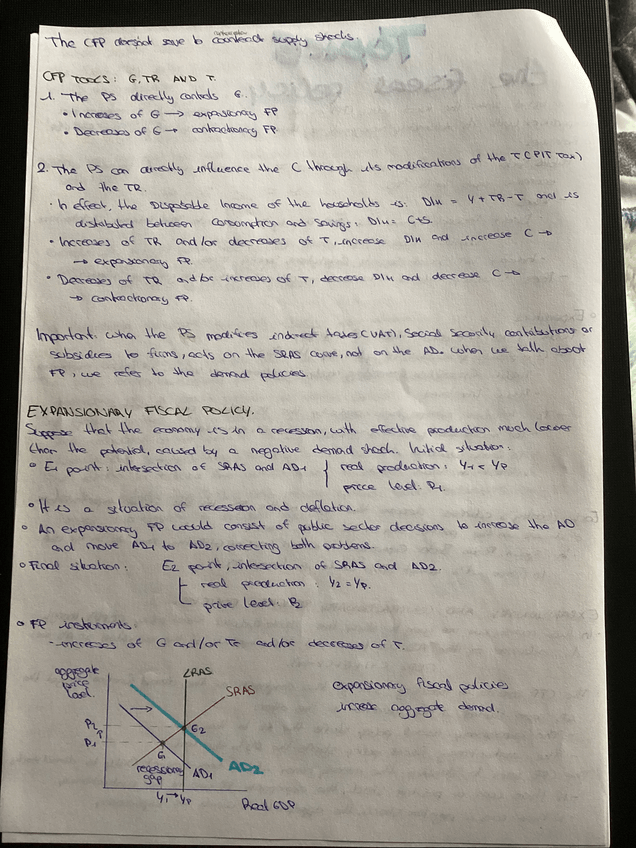 The CFP doesnot save to counteract supply shocks.
CFP TOOLS: G, TR AND T.
1. The PS directly controls G.
• Increases of G → expansionary FP
• Decreases of G → contractionary FP
2. The PS can directly influence the C through its modifications of the T (PIT Tax)
and the TR.
• In effect, the Disposable Income of the households is: DIn = Y + TR - T and is
distributed between consumption and savings. DIn = C+S.
• Increases of TR and/or decreases of T, increase DIn and increase C →
→ expansionary FP.
• Decreases of TR and/or increases of T, decrease DIn and decrease C →
→ contractionary FP.
Important: when the PS modifies indirect taxes (VAT), Social Security contributions or
subsidies to firms, acts on the SRAS curve, not on the AD. when we talk about
FP, we refer to the demand policies
EXPANSIONARY FISCAL POLICY.
Suppose that the economy is in a recession, with effective production much lower
than the potential, caused by a negative demand shock. Initial situation:
• E1 point: intersection of SRAS and AD1 { real production: Y1 < YP
price level: P1.
• It is a situation of recession and deflation.
• An expansionary FP would consist of public sector decisions to increase the AD
and move AD1 to AD2, correcting both problems.
• Final situation: E2 point, intersection of SRAS and AD2.
real production: Y2 = YP.
price level: P2
• FP instruments:
- increases of G and/or TR and/or decreases of T.
aggregate
price
level.
LRAS
SRAS
P2
P1
E2
E1
recessionary
gap
AD1
AD2
Y1 → YP
Real GDP
expansionary fiscal policies
increase aggregate demand.